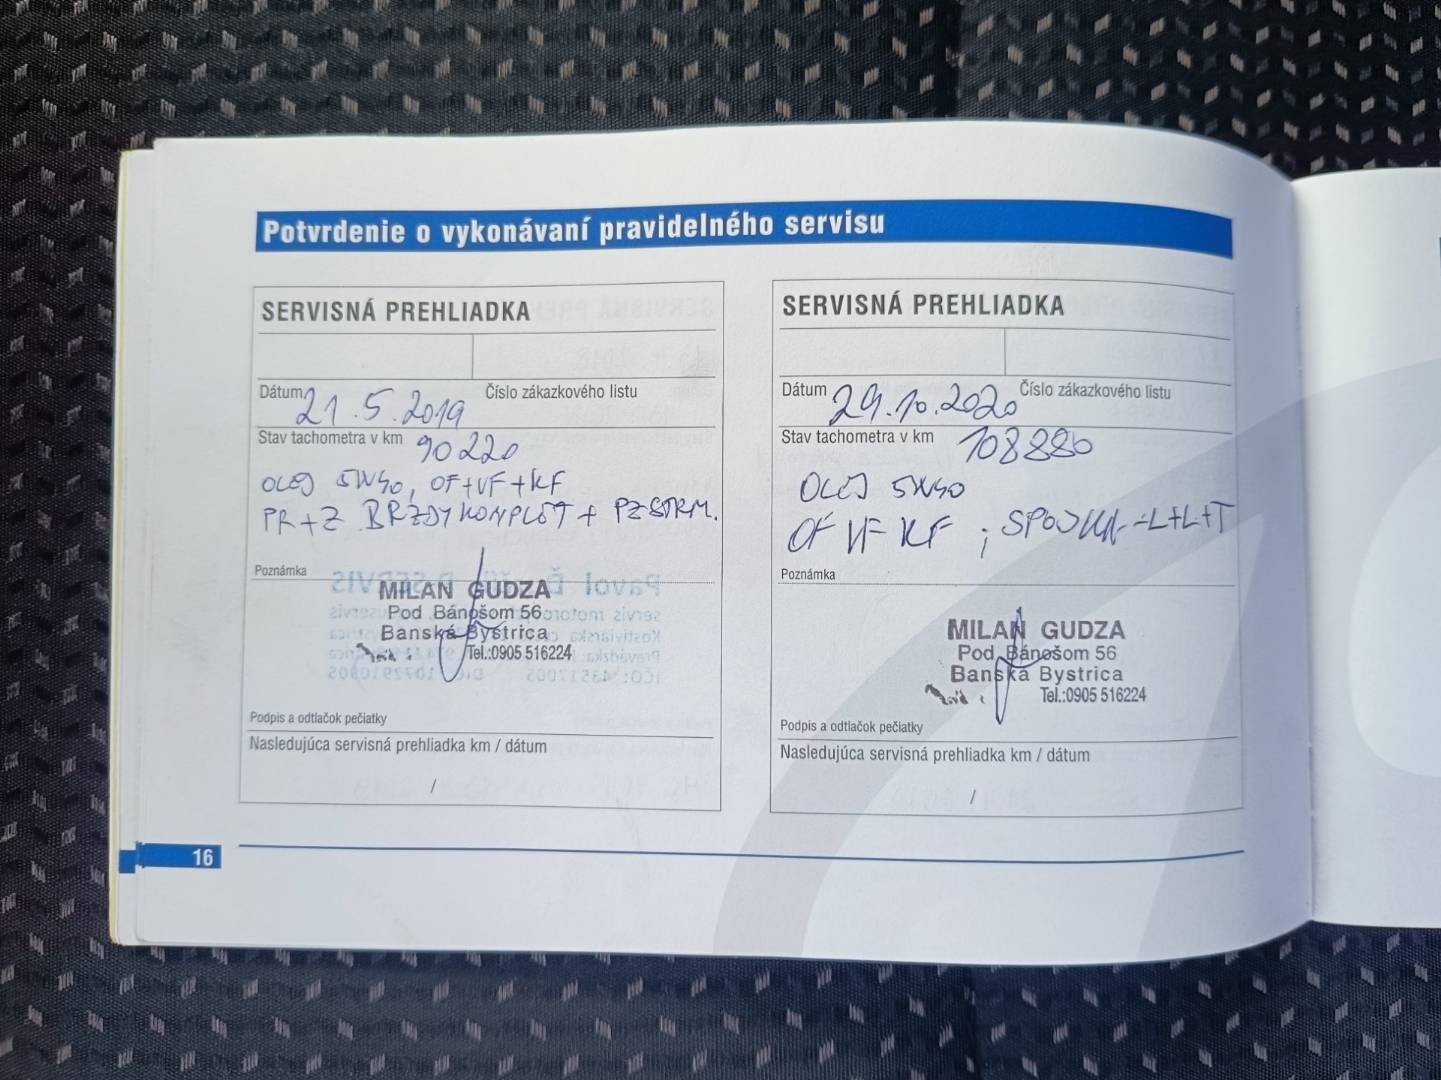 Potvrdenie o vykonávaní pravidelného servisu
SERVISNÁ PREHLIADKA
Dátum 21.5.2019
Číslo zákazkového listu
Stav tachometra v km 90220
OLEJ 5W40, OF+VF+KF
PR+Z BRZDY KOMPLET + PZ STRM.
Poznámka
MILAN GUDZA
Pod Bánošom 56
Banská Bystrica
Tel.:0905 516224
Podpis a odtlačok pečiatky
Nasledujúca servisná prehliadka km / dátum
/
SERVISNÁ PREHLIADKA
Dátum 29.10.2020
Číslo zákazkového listu
Stav tachometra v km 108880
OLEJ 5W40
OF VF KF ; SPOJKA-L+L+T
Poznámka
MILAN GUDZA
Pod Bánošom 56
Banská Bystrica
Tel.:0905 516224
Podpis a odtlačok pečiatky
Nasledujúca servisná prehliadka km / dátum
/
16